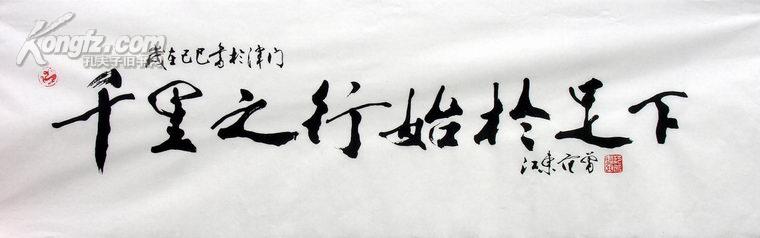 Kongfz.com
孔夫子旧书网
歲在己巳書於津门
千里之行始於足下
江東范曾